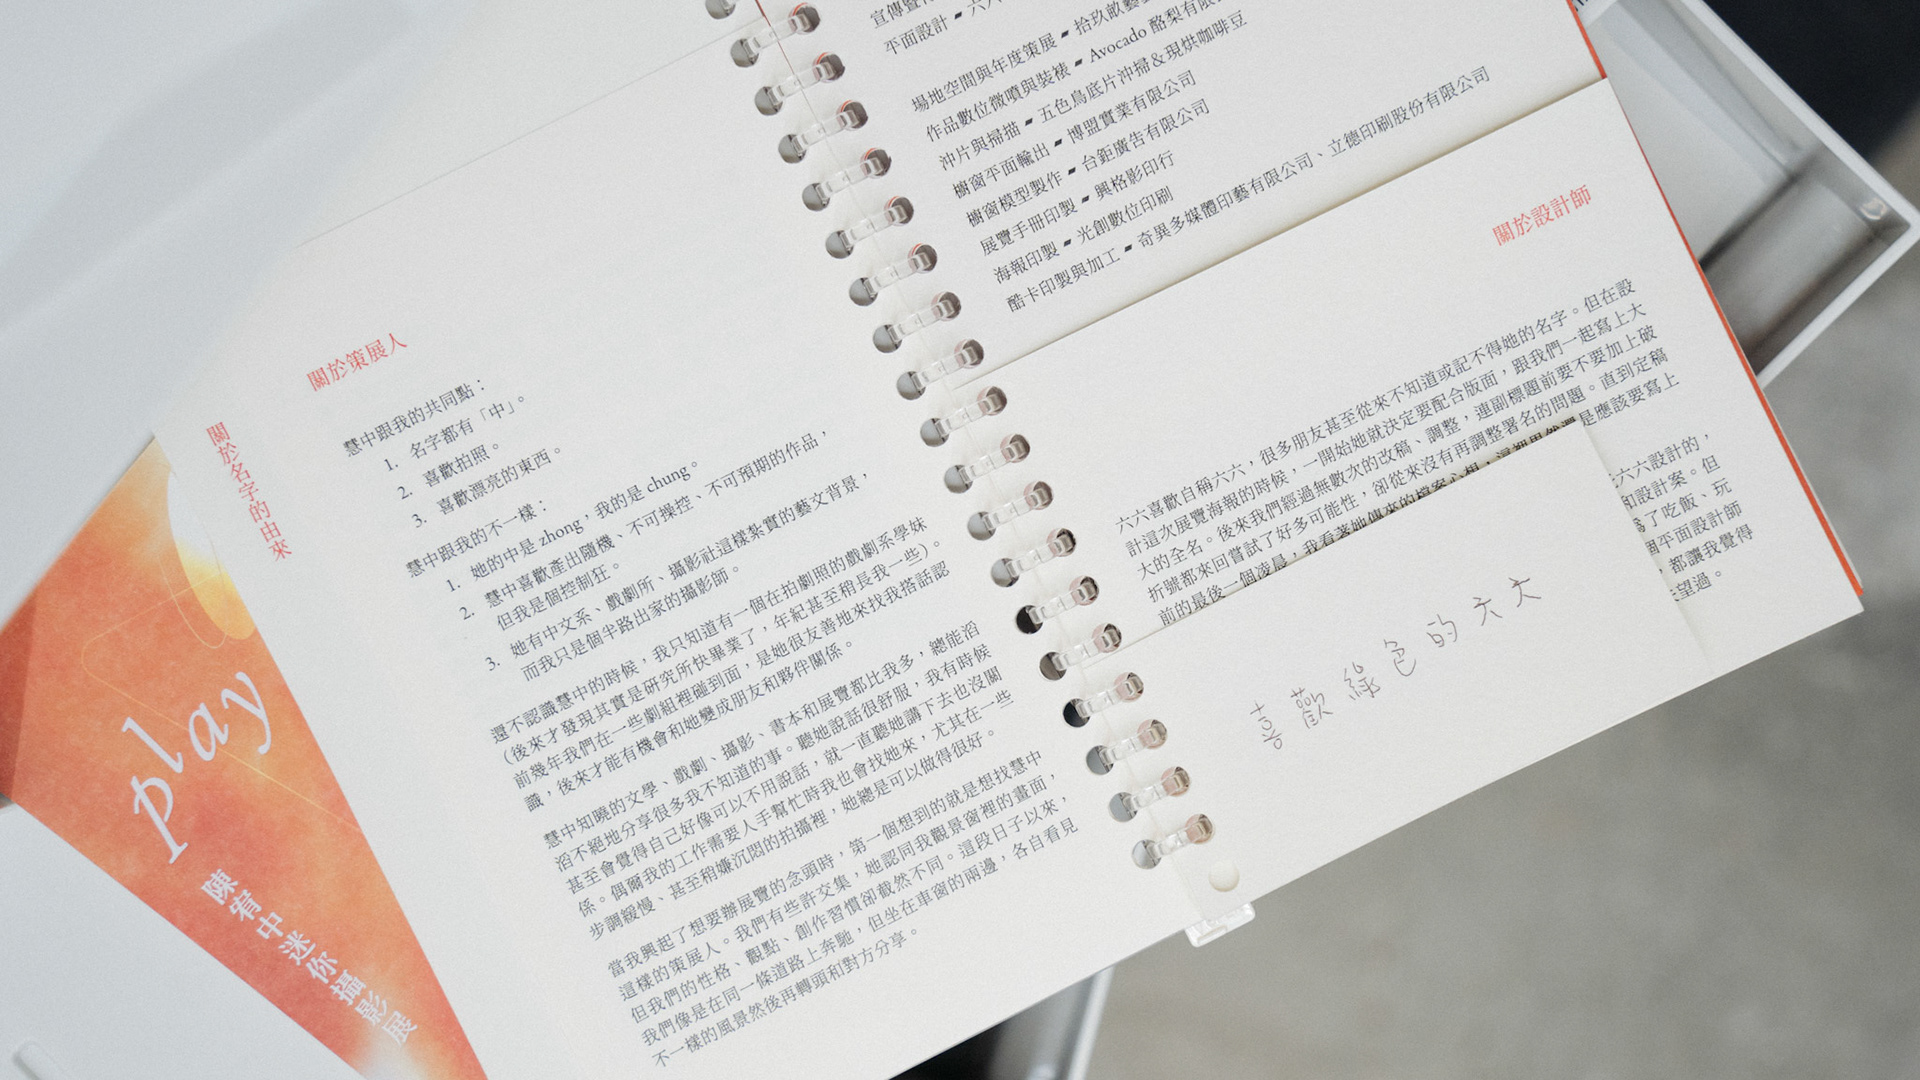 play
陳宥中迷你攝影展
關於名字的由來
關於策展人
慧中跟我的共同點：
1. 名字都有「中」。
2. 喜歡拍照。
3. 喜歡漂亮的東西。
慧中跟我的不一樣：
1. 她的中是 zhong，我的是 chung。
2. 慧中喜歡產出隨機、不可操控、不可預期的作品，
但我是個控制狂。
3. 她有中文系、戲劇所、攝影社這樣紮實的藝文背景，
而我只是個半路出家的攝影師。
還不認識慧中的時候，我只知道有一個在拍劇照的戲劇系學妹
（後來才發現其實是研究所快畢業了，年紀甚至稍長我一些）。
前幾年我們在一些劇組裡碰到面，是她很友善地來找我搭話認
識，後來才能有機會和她變成朋友和夥伴關係。
慧中知曉的文學、戲劇、攝影、書本和展覽都比我多，總能滔
滔不絕地分享很多我不知道的事。聽她說話很舒服，我有時候
甚至會覺得自己好像可以不用說話，就一直聽她講下去也沒關
係。偶爾我的工作需要人手幫忙時我也會找她來，尤其在一些
步調緩慢、甚至稍嫌沉悶的拍攝裡，她總是可以做得很好。
當我興起了想要辦展覽的念頭時，第一個想到的就是想找慧中
這樣的策展人。我們有些許交集，她認同我觀景窗裡的畫面，
但我們的性格、觀點、創作習慣卻截然不同。這段日子以來，
我們像是在同一條道路上奔馳，但坐在車窗的兩邊，各自看見
不一樣的風景然後再轉頭和對方分享。
平面設計 ▪ 六六
場地空間與年度策展 ▪ 拾玖畝藝
作品數位微噴與裝裱 ▪ Avocado 酪梨有限
沖片與掃描 ▪ 五色鳥底片沖掃＆現烘咖啡豆
櫥窗平面輸出 ▪ 博盟實業有限公司
櫥窗模型製作 ▪ 台鉅廣告有限公司
展覽手冊印製 ▪ 興格影印行
海報印製 ▪ 光創數位印刷
酷卡印製與加工 ▪ 奇異多媒體印藝有限公司、立德印刷股份有限公司
關於設計師
六六喜歡自稱六六，很多朋友甚至從來不知道或記不得她的名字。但在設
計這次展覽海報的時候，一開始她就決定要配合版面，跟我們一起寫上大
大的全名。後來我們經過無數次的改稿、調整，連副標題前要不要加上破
折號都來回嘗試了好多可能性，卻從來沒有再調整署名的問題。直到定稿
前的最後一個凌晨，我看著她傳來的檔案心想，這裡果然還是應該要寫上
六六設計的，
和設計案。但
為了吃飯、玩
個平面設計師
都讓我覺得
望過。
喜歡綠色的六六